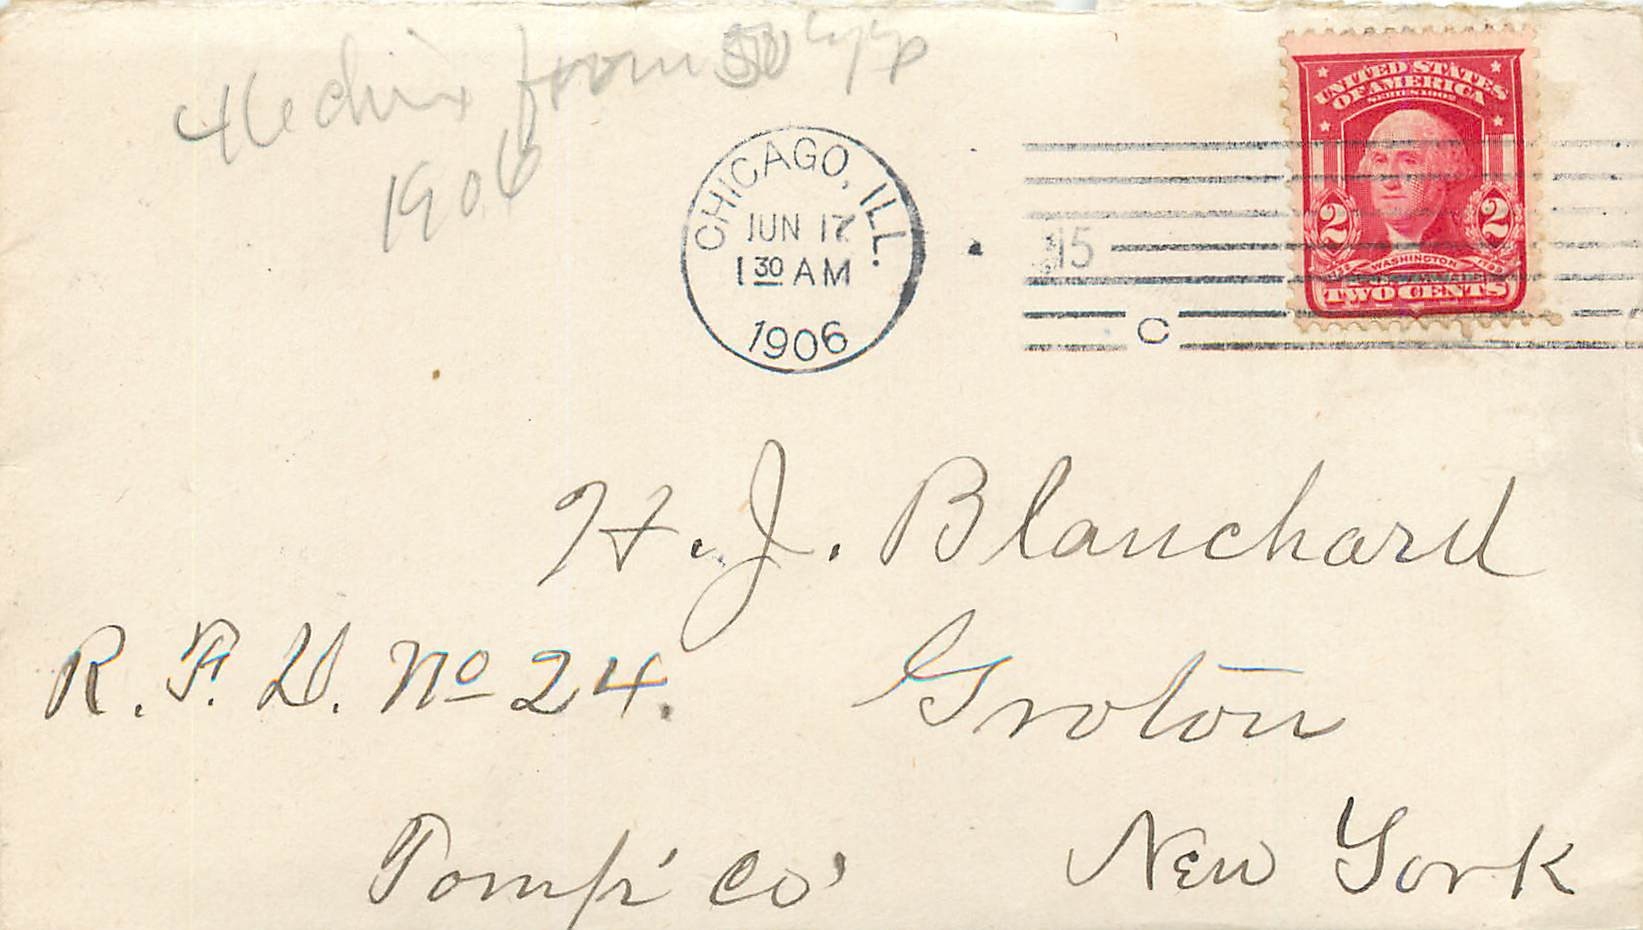 46 chix from 50 eggs
1906
CHICAGO, ILL.
JUN 17
1 30 AM
1906
15
C
UNITED STATES
OF AMERICA
SERIES 1902
2 2
WASHINGTON
TWO CENTS
H. J. Blanchard
R. F. D. No 24. Groton
Tomp' Co' New York